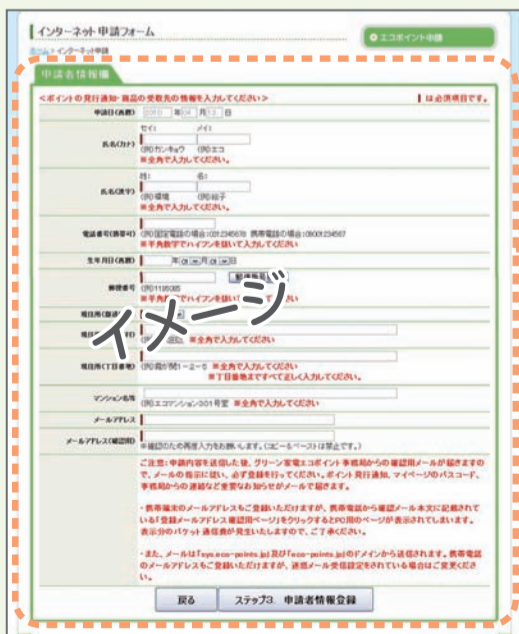 インターネット申請フォーム
エコポイント申請
ホーム > インターネット申請
申請者情報欄
<ポイントの発行通知・商品の受取先の情報を入力してください>
は必須項目です。
申請日(西暦) 2010 年 04 月 13 日
セイ: メイ:
氏名(カナ)
(例)カンキョウ (例)エコ
※全角で入力してください。
姓: 名:
氏名(漢字)
(例)環境 (例)絵子
※全角で入力してください。
電話番号(携帯可) (例)固定電話の場合:0312345678 携帯電話の場合:09001234567
※半角数字でハイフンを抜いて入力してください
生年月日(西暦) 年 01 月 01 日
郵便番号
※半角数字でハイフンを抜いて
イメージ
※全角で入力してください
現住所(丁目番地) (例)霞が関1-2-5 ※全角で入力してください
※丁目番地まですべて正しく入力してください。
マンション名等
(例)エコマンション301号室 ※全角で入力してください
メールアドレス
メールアドレス(確認用)
※確認のための再度入力をお願いします。(コピー&ペーストは禁止です。)
ご注意:申請内容を送信した後、グリーン家電エコポイント事務局からの確認用メールが届きますの
で、メールの指示に従い、必ず登録を行ってください。ポイント発行通知、マイページのパスコード、
事務局からの連絡など重要なお知らせがメールで届きます。
・携帯端末のメールアドレスもご登録いただけますが、携帯電話から確認メール本文に記載されて
いる「登録メールアドレス確認用ページ」をクリックするとPC用のページが表示されてしまいます。
表示分のパケット通信費が発生いたしますので、ご了承ください。
・また、メールは「sys.eco-points.jp」及び「eco-points.jp」のドメインから送信されます。携帯電話
のメールアドレスもご登録いただけますが、迷惑メール受信設定をされている場合はご変更くださ
い。
戻る ステップ3. 申請者情報登録